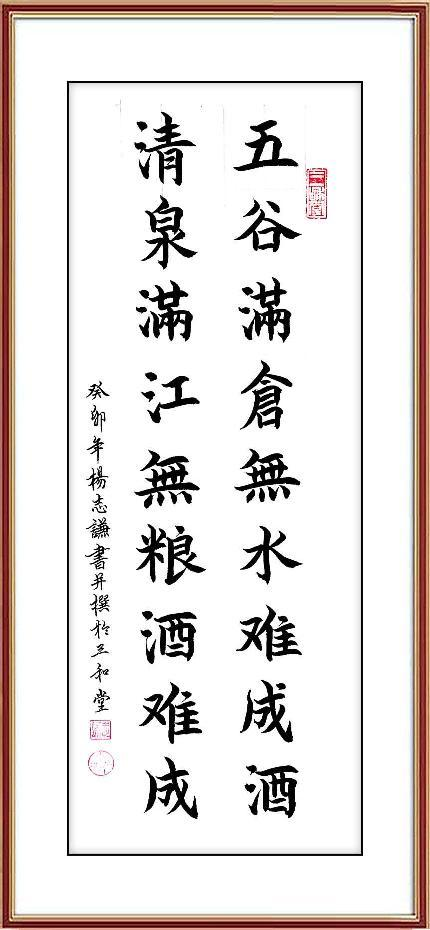 五谷滿倉無水难成酒
清泉滿江無粮酒难成
癸卯年楊志謙書并撰於三和堂